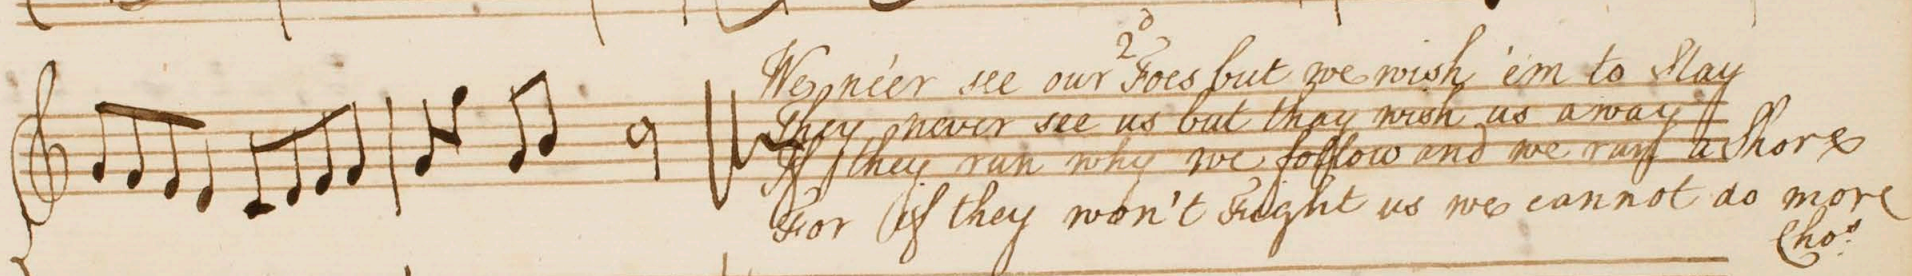 2d
We ne'er see our Foes but we wish 'em to Stay
They never see us but thay wish us away
If they run why we follow and we run a Shore
For if they won't Fight us we cannot do more
Chos.